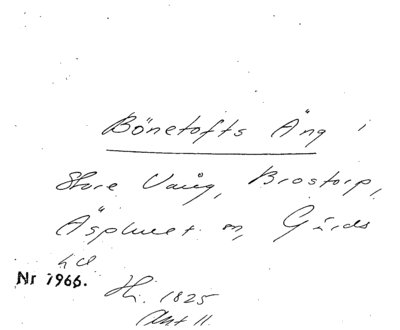 Bönetofts Äng i
Store Vång, Brostorp,
Äspluet m, Gärds
hd
Nr 1966. Hi. 1825
Akt 11.